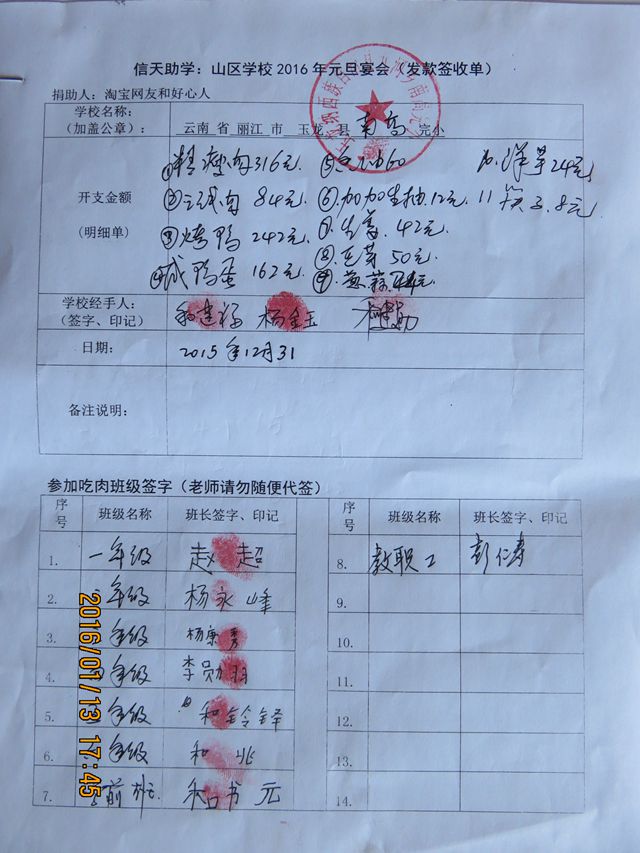 信天助学：山区学校2016年元旦宴会（发款签收单）
捐助人：淘宝网友和好心人
学校名称：
（加盖公章）：
云南 省 丽江 市 玉龙 县 南高 完小
开支金额
（明细单）
①精瘦肉316元
84元
③烤鸭 242元
④咸鸭蛋 162元
⑤ 60
⑥加加生抽12元
⑦生 42元
⑧ 50元
⑨
10.洋芋24元
11筷子8元
学校经手人：
（签字、印记）
杨金玉
日期：
2015年12月31
备注说明：
参加吃肉班级签字（老师请勿随便代签）
序号 班级名称 班长签字、印记
1. 一年级 赵 超
2. 年级 杨永峰
3. 年级 杨康秀
4. 年级 李勋羽
5. 年级 和铃铎
6. 年级 和 兆
7. 前班 和书元
序号 班级名称 班长签字、印记
8. 教职工 彭仁寿
9.
10.
11.
12.
13.
14.
2016/01/13 17:45